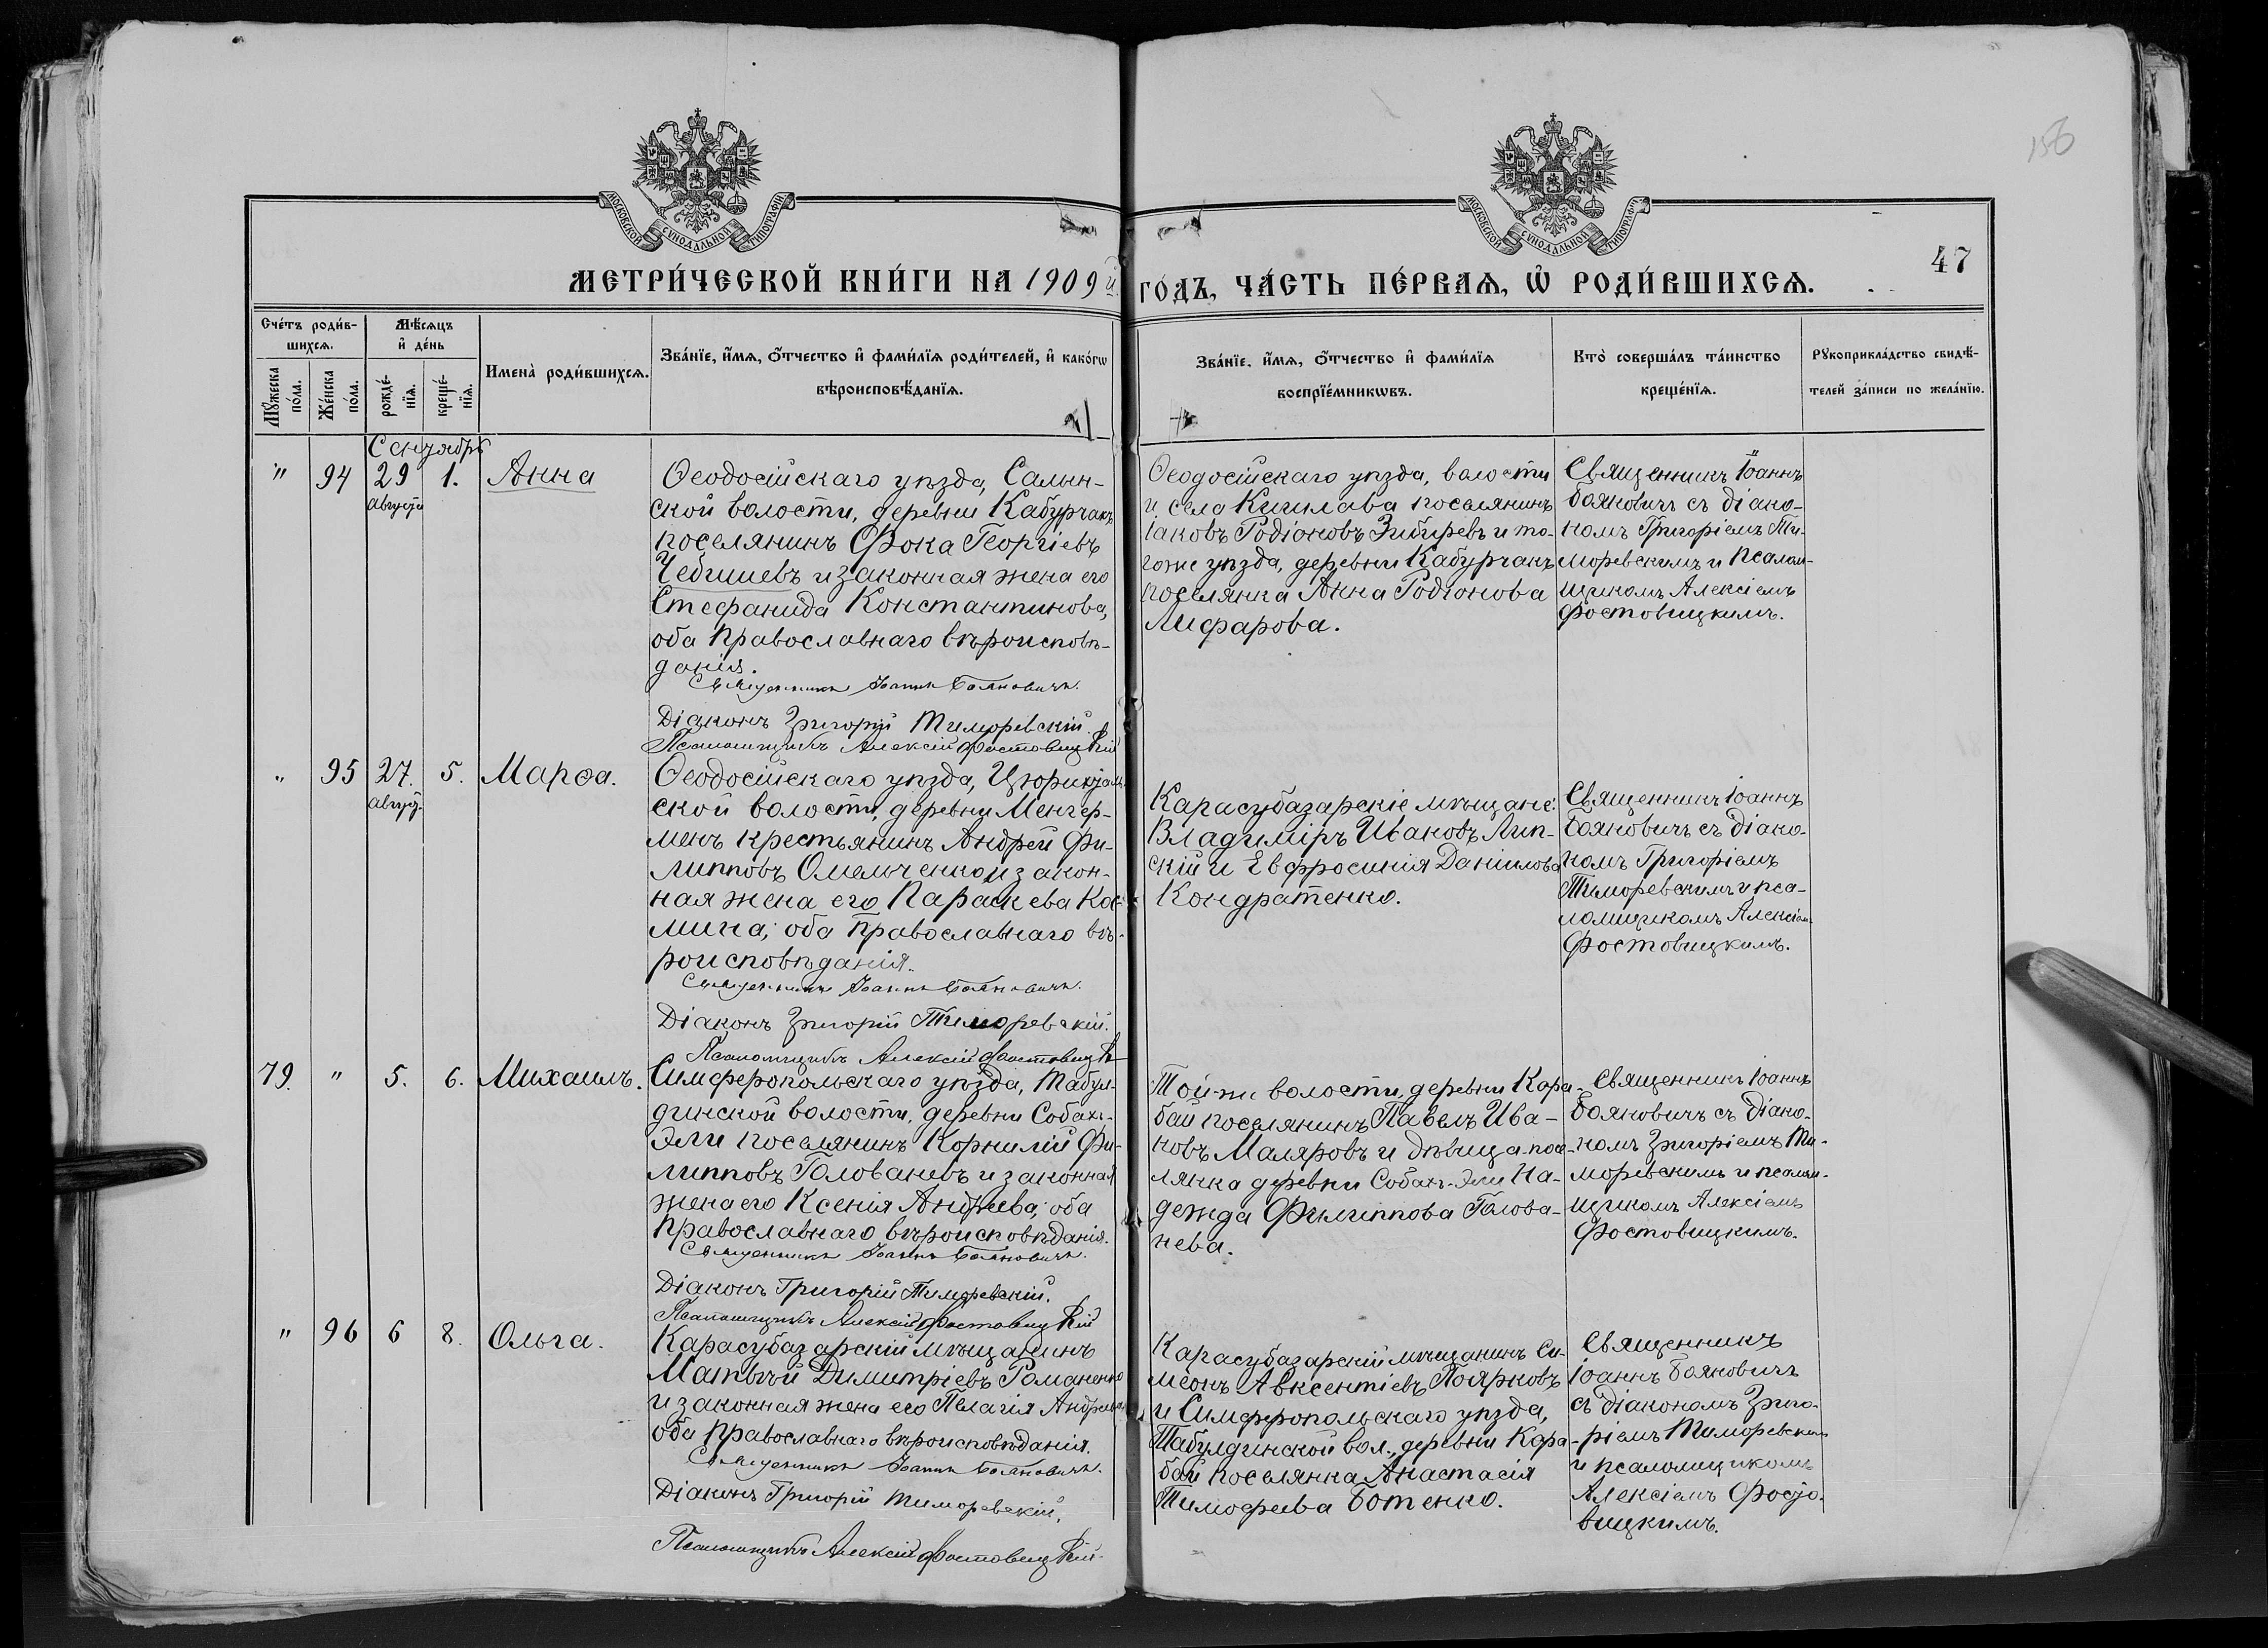 156
МОСКОВСКОЙ СѴНОДАЛЬНОЙ ТИПОГРАФІИ
МОСКОВСКОЙ СѴНОДАЛЬНОЙ ТИПОГРАФІИ
47
МЕТРИ́ЧЕСКОЙ КНИ́ГИ НА 1909 й ГО́ДЪ, ЧА́СТЬ ПЕ́РВАѦ, Ѽ РОДИ́ВШИХСѦ.
Сче́тъ роди́в-
шихсѧ.
Мѣ́сѧцъ
и҆ де́нь
Мꙋ́жеска по́ла.
Же́нска по́ла.
рожде́-
нїѧ.
креще́-
нїѧ.
Имена̀ роди́вшихсѧ.
Зва́нїе, и҆́мѧ, ѻ҆́тчество и҆ фами́лїѧ роди́телей, и҆ како́гѡ
вѣроисповѣ́данїѧ.
Зва́нїе, и҆́мѧ, ѻ҆́тчество и҆ фами́лїѧ
воспрїе́мникѡвъ.
Кто̀ соверша́лъ та́инство
креще́нїѧ.
Рꙋкоприкла́дство свидѣ́-
телей за́писи по жела́нїю.
Сентябрь
" 94 29 1. Анна
августа
Ѳеодосійскаго уѣзда, Салын-
ской волости, деревни Кабурчакъ
поселянинъ Фока Георгіевъ
Чебишевъ и законная жена его
Стефанида Константинова,
оба православнаго вѣроисповѣ-
данія.
Священникъ Іоаннъ Бояновичъ.
Діаконъ Григорій Тиморевскій.
Псаломщикъ Алексій Фостовицкій
Ѳеодосійскаго уѣзда, волости
и села Кишлава поселянинъ
Іаковъ Родіоновъ Зибиревъ и то-
гоже уѣзда, деревни Кабурчакъ
поселянка Анна Родіонова
Лифарова.
Священникъ Іоаннъ
Бояновичъ съ діако-
номъ Григоріемъ Ти-
моревскимъ и псалом-
щикомъ Алексіемъ
Фостовицкимъ.
" 95 27. 5. Марѳа.
август.
Ѳеодосійскаго уѣзда, Цюрихтал-
ской волости, деревни Менгер-
менъ крестьянинъ Андрей Фи-
липповъ Омельченко и закон-
ная жена его Параскева Кос-
мина; оба православнаго вѣ-
роисповѣданія.
Священникъ Іоаннъ Бояновичъ.
Діаконъ Григорій Тиморевскій.
Псаломщикъ Алексій Фостовицкій
Карасубазарскіе мѣщане:
Владиміръ Ивановъ Лип-
скій и Евфросинія Даніилова
Кондратенко.
Священникъ Іоаннъ
Бояновичъ съ діако-
номъ Григоріемъ
Тиморевскимъ и пса-
ломщикомъ Алексіемъ
Фостовицкимъ.
79. " 5. 6. Михаилъ.
Симферопольскаго уѣзда, Табул-
динской волости, деревни Собахъ-
Эли поселянинъ Корнилій Фи-
липповъ Голованевъ и законная
жена его Ксенія Андреева; оба
православнаго вѣроисповѣданія.
Священникъ Іоаннъ Бояновичъ.
Діаконъ Григорій Тиморевскій.
Псаломщикъ Алексій Фостовицкій
Той-же волости, деревни Кара-
бай поселянинъ Павелъ Ива-
новъ Маляровъ и дѣвица-посе-
лянка деревни Собахъ-Эли На-
дежда Филиппова Голова-
нева.
Священникъ Іоаннъ
Бояновичъ съ діако-
номъ Григоріемъ Ти-
моревскимъ и псалом-
щикомъ Алексіемъ
Фостовицкимъ.
" 96 6 8. Ольга.
Карасубазарскій мѣщанинъ
Матвѣй Димитріевъ Романенко
и законная жена его Пелагія Андреева
оба православнаго вѣроисповѣданія.
Священникъ Іоаннъ Бояновичъ.
Діаконъ Григорій Тиморевскій.
Псаломщикъ Алексій Фостовицкій.
Карасубазарскій мѣщанинъ Си-
меонъ Авксентіевъ Поярковъ
и Симферопольскаго уѣзда,
Табулдинской вол., деревни Кара-
бай поселянка Анастасія
Тимофеева Ботенко.
Священникъ
Іоаннъ Бояновичъ
съ діакономъ Григо-
ріемъ Тиморевскимъ
и псаломщикомъ
Алексіемъ Фосто-
вицкимъ.